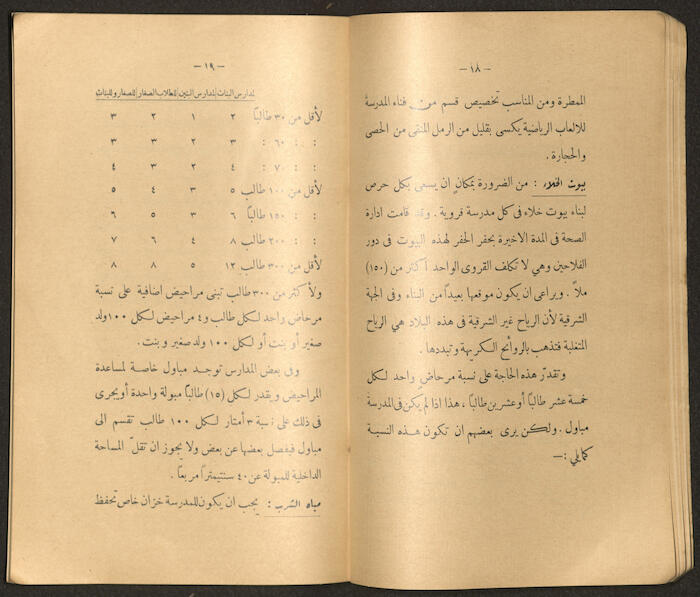 — ١٨ —
الممطرة ومن المناسب تخصيص قسم من فناء المدرسة
للالعاب الرياضية يكسى بقليل من الرمل المنقى من الحصى
والحجارة .
بيوت الخلاء : من الضرورة بمكان ان يسعى بكل حرص
لبناء بيوت خلاء فى كل مدرسة قروية . وقد قامت ادارة
الصحة فى المدة الاخيرة بحفر الحفر لهذه البيوت فى دور
الفلاحين وهى لا تكلف القروى الواحد أكثر من (١٥٠)
ملاً . ويراعى ان يكون موقعها بعيداً من البناء وفى الجهة
الشرقية لأن الرياح غير الشرقية فى هذه البلاد هي الرياح
المتغلبة فتذهب بالروائح الكريهة وتبددها .
وتقدر هذه الحاجة على نسبة مرحاض واحد لكل
خمسة عشر طالباً أو عشرين طالبا ، هذا اذا لم يكن فى المدرسة
مباول . ولكن يرى بعضهم ان تكون هذه النسبة
كمايلي : —
— ١٩ —
لمدارس البنات لمدارس البنين للطلاب الصغار للصغار وللبنات
لأقل من ٣٠ طالباً ٢ ١ ٢ ٣
: : ٦٠ : ٣ ٢ ٣ ٣
: : ٧٠ : ٤ ٢ ٣ ٤
لأقل من ١٠٠ طالب ٥ ٣ ٤ ٥
: : ١٥٠ طالباً ٦ ٣ ٥ ٦
: : ٢٠٠ طالب ٨ ٤ ٦ ٧
لأقل من ٣٠٠ طالب ١٢ ٥ ٨ ٨
ولأكثر من ٣٠٠ طالب تبنى مراحيض اضافية على نسبة
مرحاض واحد لكل طالب و٤ مراحيض لكل ١٠٠ ولد
صغير أو بنت أو لكل ١٠٠ ولد صغير وبنت .
وفى بعض المدارس توجد مباول خاصة لمساعدة
المراحيض ويقدر لكل (١٥) طالباً مبولة واحدة أو يجرى
فى ذلك على نسبة ٣ أمتار لكل ١٠٠ طالب تقسم الى
مباول فيفصل بعضها عن بعض ولا يجوز ان تقلّ المساحة
الداخلية للمبولة عن ٤٠ سنتيمتراً مربعاً .
مياه الشرب : يجب ان يكون للمدرسة خزان خاص تحفظ